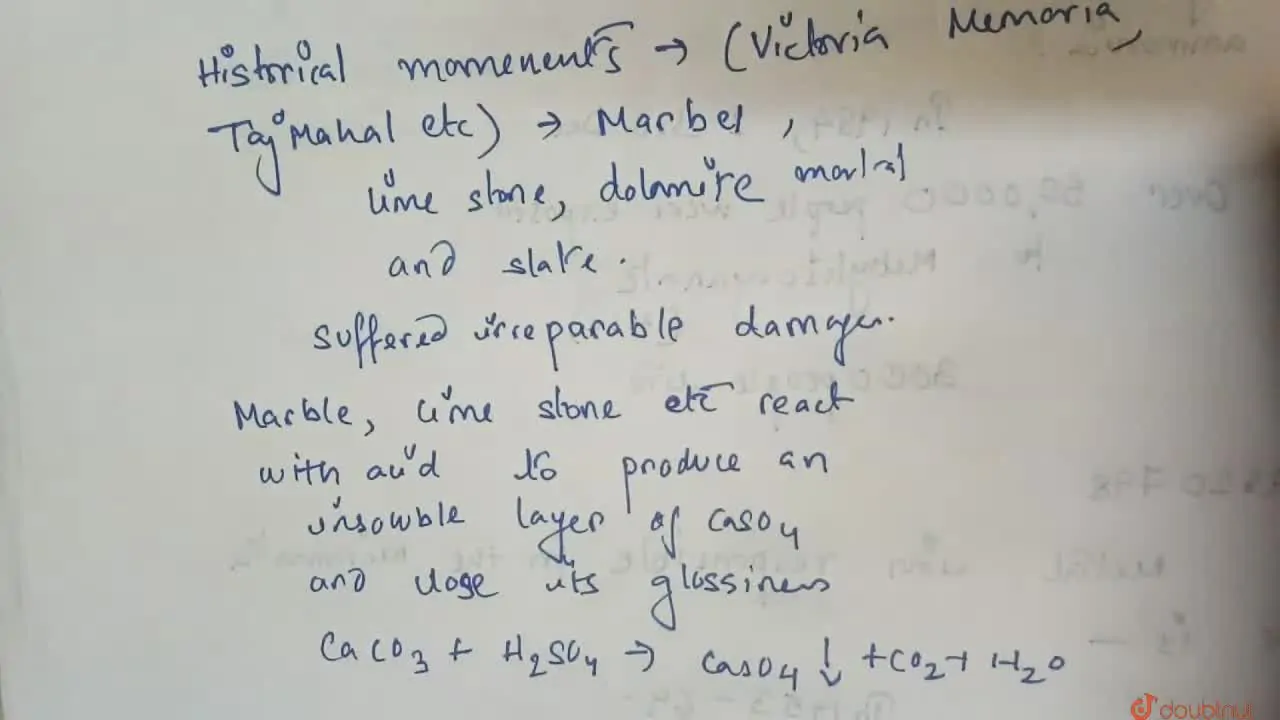 Historical momenents → (Victoria Memoria
Taj Mahal etc) → Marbel,
lime stone, dolomire mortal
and slate.
suffered irreparable damages.
Marble, lime stone etc react
with acid to produce an
insoluble layer of CaSO4
and loose its glossiness
CaCO3 + H2SO4 → CaSO4 ↓ + CO2 + H2O
doubtnut